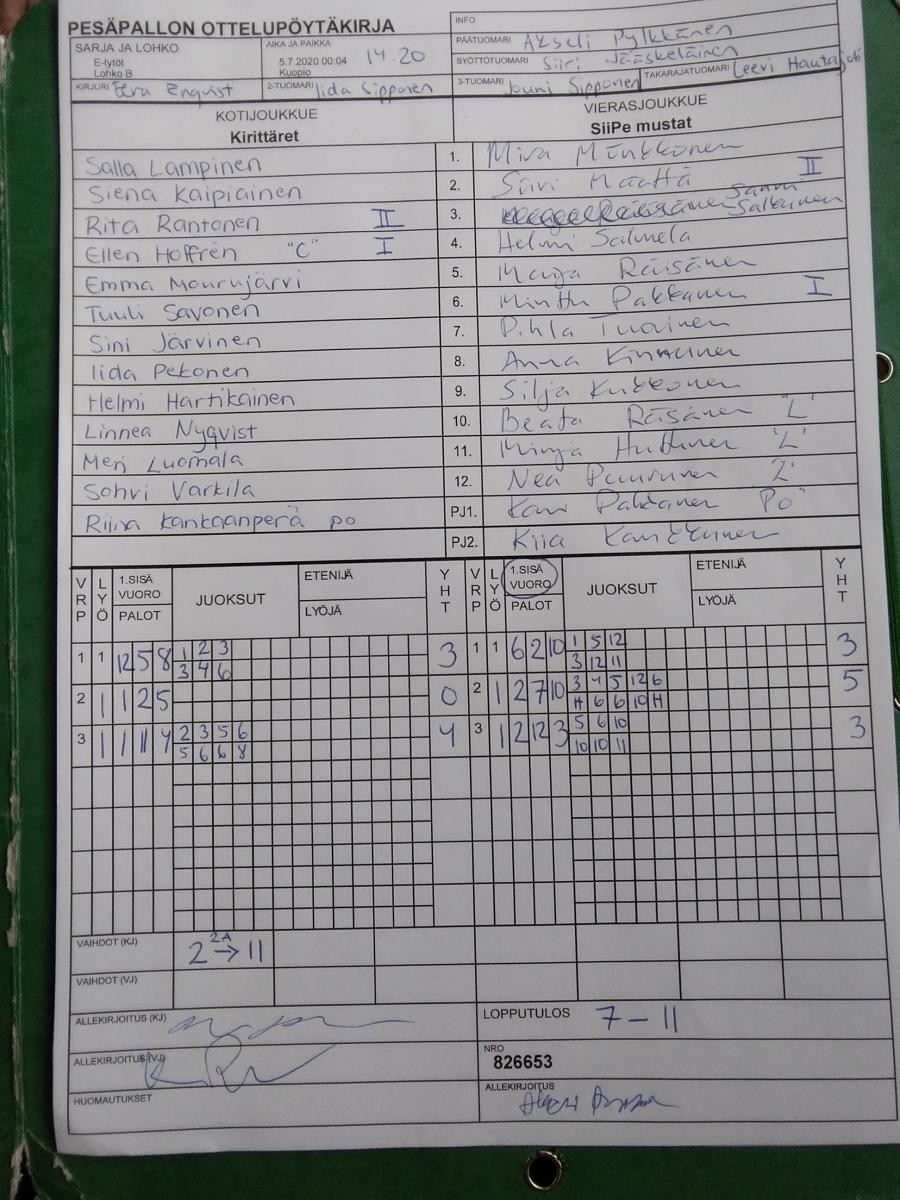 PESÄPALLON OTTELUPÖYTÄKIRJA
INFO
SARJA JA LOHKO
E-tytöt
Lohko B
AIKA JA PAIKKA
5.7.2020 00:04 14.20
Kuopio
PÄÄTUOMARI Akseli Pylkkänen
SYÖTTÖTUOMARI Siiri Jääskeläinen
KIRJURI Eera Enqvist
2-TUOMARI Iida Sipponen
3-TUOMARI Jouni Sipponen
TAKARAJATUOMARI Leevi Hautajoki
KOTIJOUKKUE
Kirittäret
VIERASJOUKKUE
SiiPe mustat
Salla Lampinen 1. Miva Mönkkönen
Siena Kaipiainen 2. Siivi Määttä II
Rita Rantonen II 3. Sanni Salkainen
Ellen Hoffrén "C" I 4. Helmi Salmela
Emma Mourujärvi 5. Maija Räisänen
Tuuli Savonen 6. Minttu Pakkanen I
Sini Järvinen 7. Pihla Tuovinen
Iida Pekonen 8. Anna Kinnunen
Helmi Hartikainen 9. Silja Kukkonen
Linnea Nyqvist 10. Beata Räisänen "L"
Meri Luomala 11. Minja Huttunen "L"
Sohvi Varkila 12. Nea "L"
Riina Kankaanperä PO PJ1. Pakkanen "Po"
PJ2. Kiia
VRP LYÖ 1.SISÄ VUORO PALOT JUOKSUT ETENIJÄ LYÖJÄ YHT VRP LYÖ 1.SISÄ VUORO PALOT JUOKSUT ETENIJÄ LYÖJÄ YHT
1 1 12 5 8 1 2 3 3 1 1 6 2 10 1 5 12 3
3 4 6 3 12 11
2 1 1 2 5 0 2 1 2 7 10 3 4 5 12 6 5
H 6 6 10 H
3 1 1 11 4 2 3 5 6 4 3 1 2 12 3 5 6 10 3
5 6 6 8 10 10 11
VAIHDOT (KJ) 2 2A → 11
VAIHDOT (VJ)
ALLEKIRJOITUS (KJ)
LOPPUTULOS 7 - 11
ALLEKIRJOITUS (VJ)
NRO
826653
HUOMAUTUKSET
ALLEKIRJOITUS